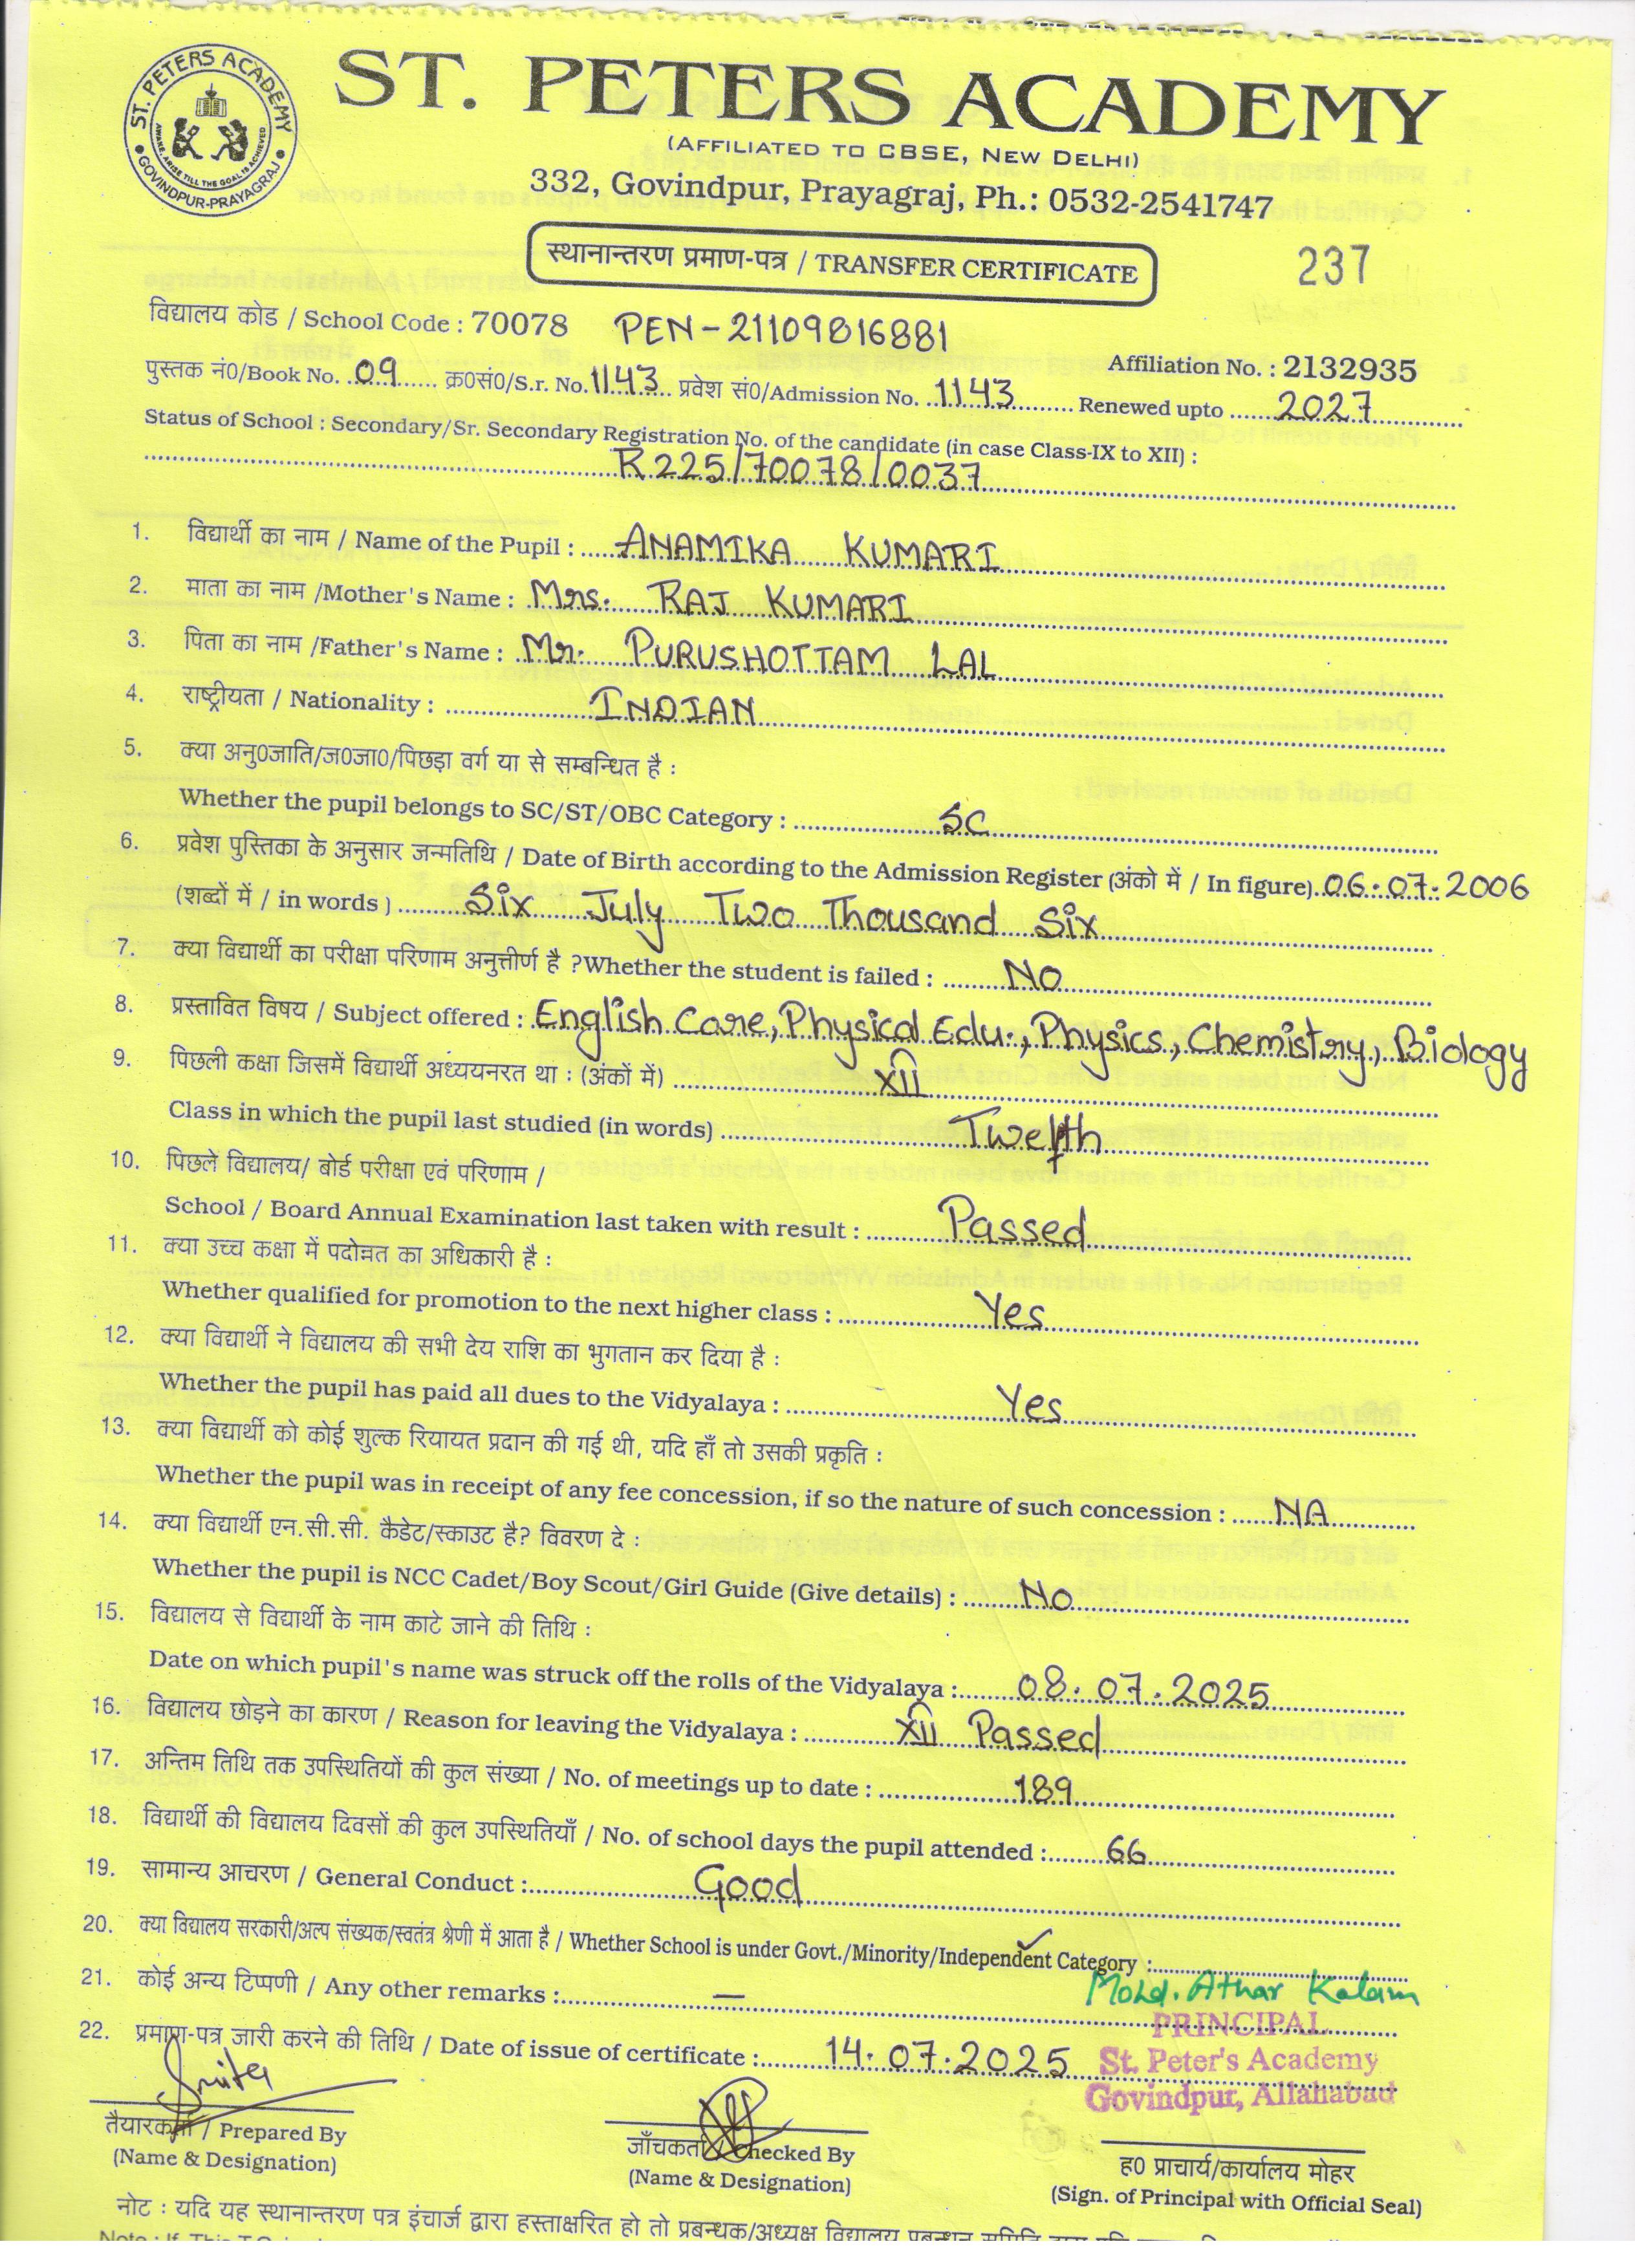 ST. PETERS ACADEMY
AWAKE, ARISE TILL THE GOAL IS ACHIEVED
GOVINDPUR-PRAYAGRAJ
ST. PETERS ACADEMY
(AFFILIATED TO CBSE, NEW DELHI)
332, Govindpur, Prayagraj, Ph.: 0532-2541747
स्थानान्तरण प्रमाण-पत्र / TRANSFER CERTIFICATE
237
विद्यालय कोड / School Code : 70078 PEN-21109816881
Affiliation No. : 2132935
पुस्तक नं0/Book No. 09 क्र0सं0/S.r. No. 1143 प्रवेश सं0/Admission No. 1143 Renewed upto 2027
Status of School : Secondary/Sr. Secondary Registration No. of the candidate (in case Class-IX to XII) :
R225/70078/0037
1. विद्यार्थी का नाम / Name of the Pupil : ANAMIKA KUMARI
2. माता का नाम /Mother's Name : Mrs. RAJ KUMARI
3. पिता का नाम /Father's Name : Mr. PURUSHOTTAM LAL
4. राष्ट्रीयता / Nationality : INDIAN
5. क्या अनु0जाति/ज0जा0/पिछड़ा वर्ग या से सम्बन्धित है :
Whether the pupil belongs to SC/ST/OBC Category : SC
6. प्रवेश पुस्तिका के अनुसार जन्मतिथि / Date of Birth according to the Admission Register (अंको में / In figure) 06.07.2006
(शब्दों में / in words ) Six July Two Thousand Six
7. क्या विद्यार्थी का परीक्षा परिणाम अनुत्तीर्ण है ?Whether the student is failed : NO
8. प्रस्तावित विषय / Subject offered : English Core, Physical Edu., Physics, Chemistry, Biology
9. पिछली कक्षा जिसमें विद्यार्थी अध्ययनरत था : (अंकों में) XII
Class in which the pupil last studied (in words) Twelfth
10. पिछले विद्यालय/ बोर्ड परीक्षा एवं परिणाम /
School / Board Annual Examination last taken with result : Passed
11. क्या उच्च कक्षा में पदोन्नत का अधिकारी है :
Whether qualified for promotion to the next higher class : Yes
12. क्या विद्यार्थी ने विद्यालय की सभी देय राशि का भुगतान कर दिया है :
Whether the pupil has paid all dues to the Vidyalaya : Yes
13. क्या विद्यार्थी को कोई शुल्क रियायत प्रदान की गई थी, यदि हाँ तो उसकी प्रकृति :
Whether the pupil was in receipt of any fee concession, if so the nature of such concession : NA
14. क्या विद्यार्थी एन.सी.सी. कैडेट/स्काउट है? विवरण दे :
Whether the pupil is NCC Cadet/Boy Scout/Girl Guide (Give details) : No
15. विद्यालय से विद्यार्थी के नाम काटे जाने की तिथि :
Date on which pupil's name was struck off the rolls of the Vidyalaya : 08.07.2025
16. विद्यालय छोड़ने का कारण / Reason for leaving the Vidyalaya : XII Passed
17. अन्तिम तिथि तक उपस्थितियों की कुल संख्या / No. of meetings up to date : 189
18. विद्यार्थी की विद्यालय दिवसों की कुल उपस्थितियाँ / No. of school days the pupil attended : 66
19. सामान्य आचरण / General Conduct : Good
20. क्या विद्यालय सरकारी/अल्प संख्यक/स्वतंत्र श्रेणी में आता है / Whether School is under Govt./Minority/Independent Category :
21. कोई अन्य टिप्पणी / Any other remarks : —
Mohd. Athar Kalam
PRINCIPAL
22. प्रमाण-पत्र जारी करने की तिथि / Date of issue of certificate : 14.07.2025
St. Peter's Academy
Govindpur, Allahabad
तैयारकर्ता / Prepared By
(Name & Designation)
जाँचकर्ता / Checked By
(Name & Designation)
ह0 प्राचार्य/कार्यालय मोहर
(Sign. of Principal with Official Seal)
नोट : यदि यह स्थानान्तरण पत्र इंचार्ज द्वारा हस्ताक्षरित हो तो प्रबन्धक/अध्यक्ष विद्यालय